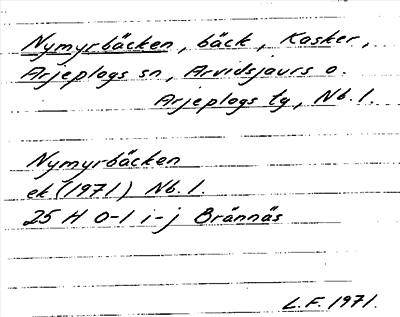 Nymyrbäcken, bäck, Kasker,
Arjeplogs sn, Arvidsjaurs o.
Arjeplogs tg, Nb. l.
Nymyrbäcken
ek (1971) Nb. l.
25 H 0-1 i-j Brännäs
L.F. 1971.